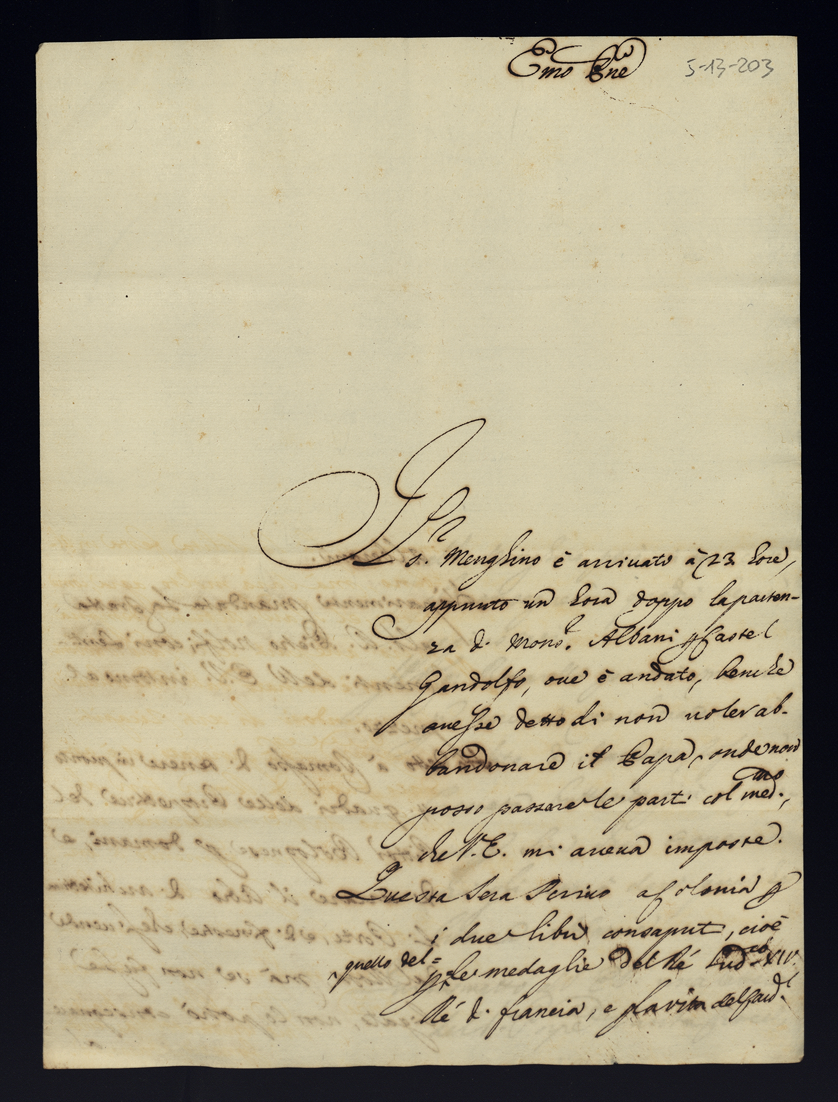 Emo Pne
5-13-203
Il Sr
s. Menghino è arrivato à 23 hore,
appunto un hora doppo la parten-
za di Monsr. Albani p Castel
Gandolfo, ove è andato, benche
avesse detto di non voler ab-
bandonare il Papa, onde non
posso passare le parti col medmo,
che V. E. mi aveva imposte.
Questa sera scrivo a Colonia p
i due libri consaputi, cioè
quello del-
le medaglie del Ré Ludco XIV
Ré di francia, e p la vita del Cardl